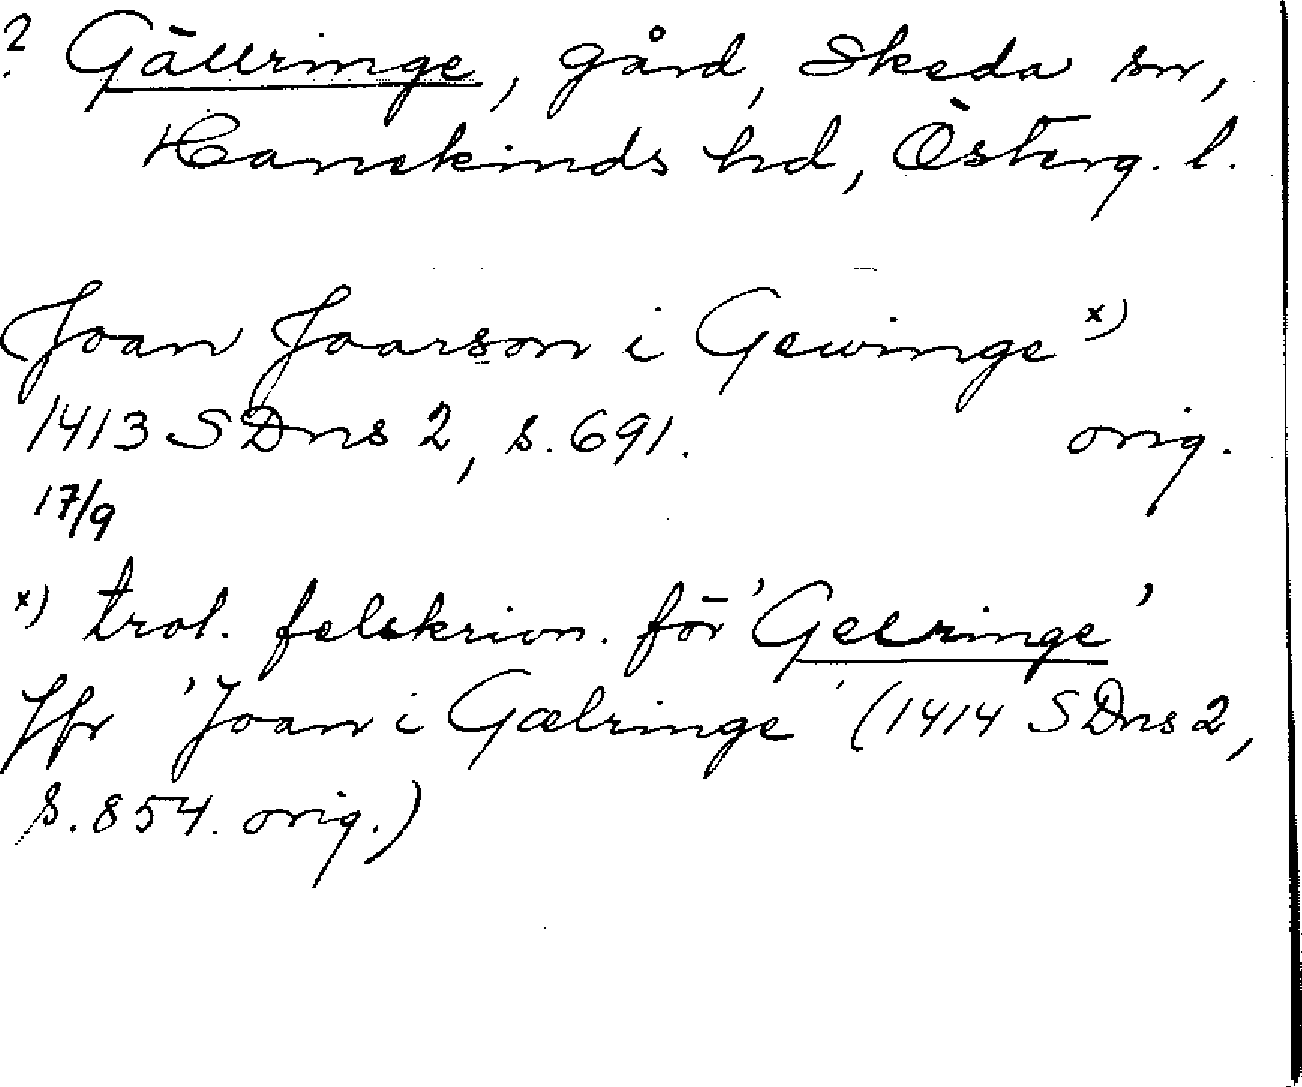 ? Gällringe, gård, Skeda sn,
Hanekinds hd, Österg. l.
Joan Joarson i Gewinge x)
1413 SDns 2, s. 691. orig.
17/9
x) trol. felskrivn. för 'Gelringe'
Jfr 'Joan i Gælringe' (1414 SDns 2,
s. 854. orig.)